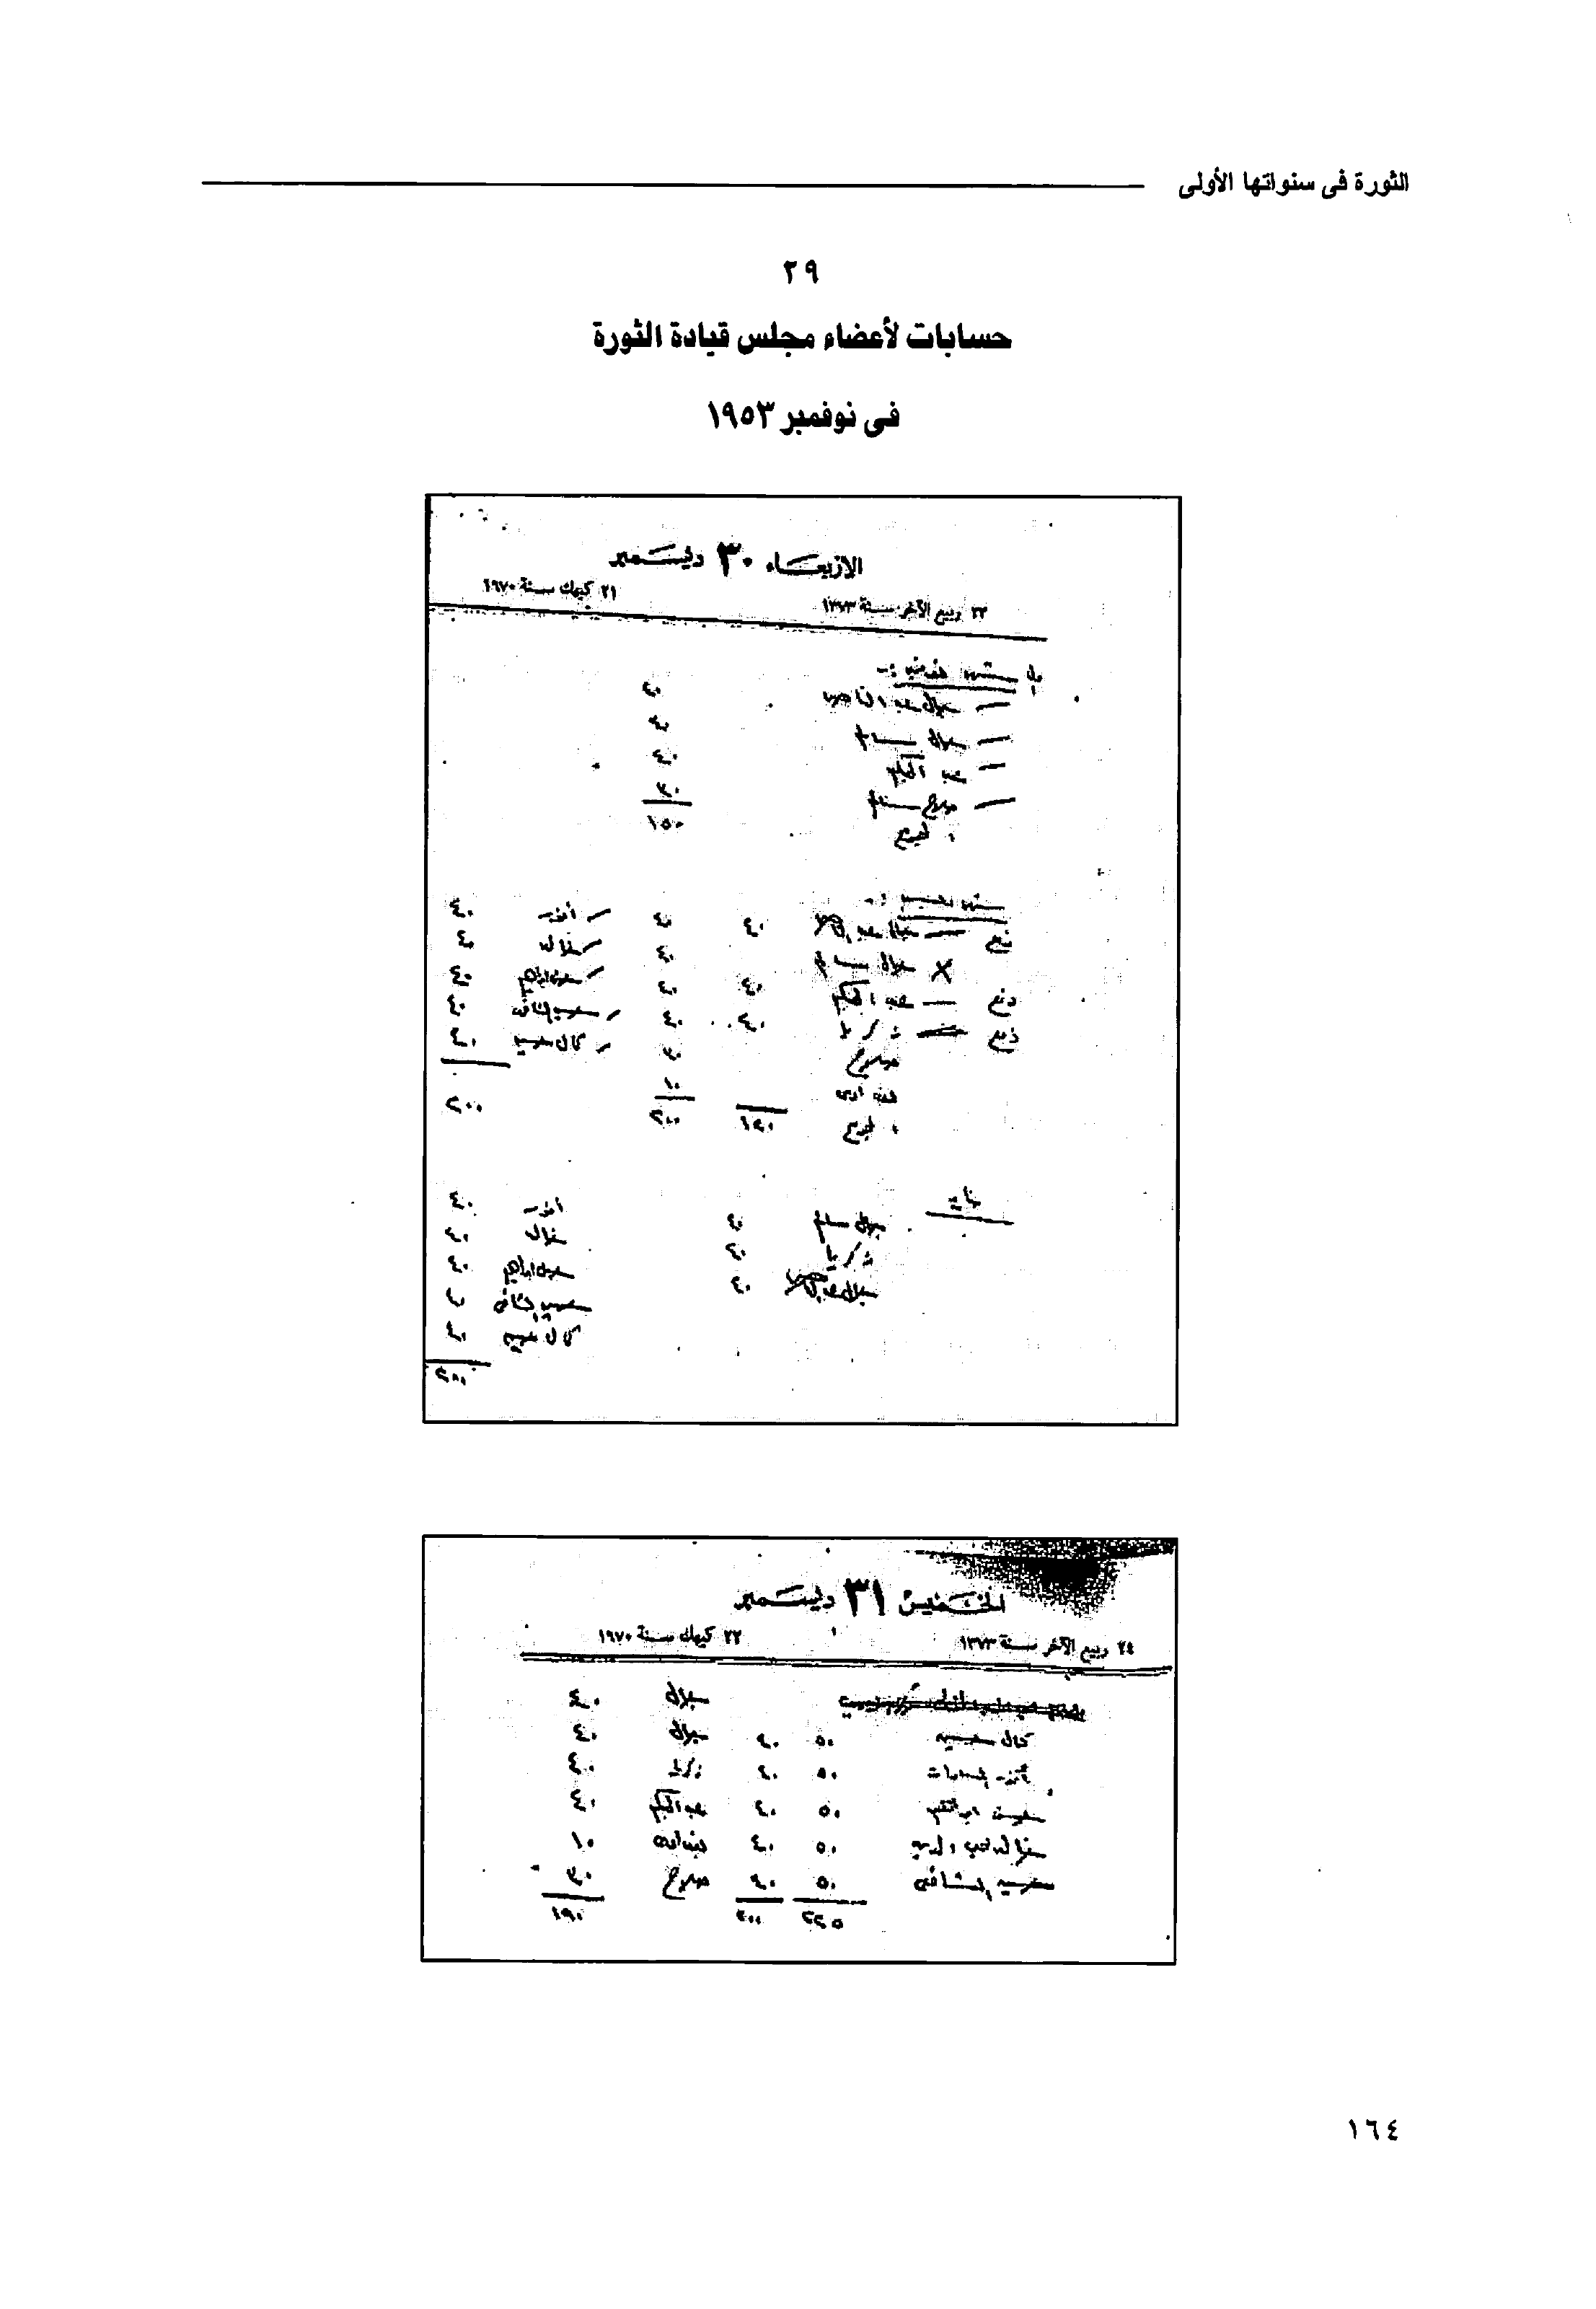 الثورة فى سنواتها الأولى
٢٩
حسابات لأعضاء مجلس قيادة الثورة
فى نوفمبر ١٩٥٣
الاربعاء ٣٠ ديسمبر
٢٣ ربيع الآخر سنة ١٣٧٣ ٢١ كيهك سنة ١٦٧٠
— جمال عبد الناصر ٤٠
— جمال سالم ٤٠
— عبد الحكيم ٤٠
— صلاح سالم ٣٠
المجموع ١٥٠
دفع — جمال عبد الناصر ٤٠ ٤٠ / أنور ٤٠
X جمال سالم ٤٠ / بغدادى ٤٠
دفع — عبد الحكيم ٤٠ ٤٠ / حسن ابراهيم ٤٠
دفع — زكريا ٤٠ ٤٠ / حسين الشافعى ٤٠
صلاح ٣٠ / كمال حسين ٤٠
١٠
المجموع ١٢٠ ٢٠٠ ٢٠٠
جمال سالم ٤٠ أنور ٤٠
زكريا ٤٠ ٤٠
جمال عبد الناصر ٤٠ حسن ابراهيم ٤٠
حسين الشافعى ٤٠
كمال حسين ٤٠
٢٠٠
الخميس ٣١ ديسمبر
٢٤ ربيع الآخر سنة ١٣٧٣ ٢٢ كيهك سنة ١٦٧٠
جمال ٤٠
كمال حسين ٥٠ ٤٠ جمال ٤٠
أنور السادات ٥٠ ٤٠ زكريا ٤٠
حسن ابراهيم ٥٠ ٤٠ عبد الحكيم ٤٠
٥٠ ٤٠ ١٠
حسين الشافعى ٥٠ ٤٠ صلاح ٣٠
٢٢٥ ٢٠٠ ١٩٠
١٦٤